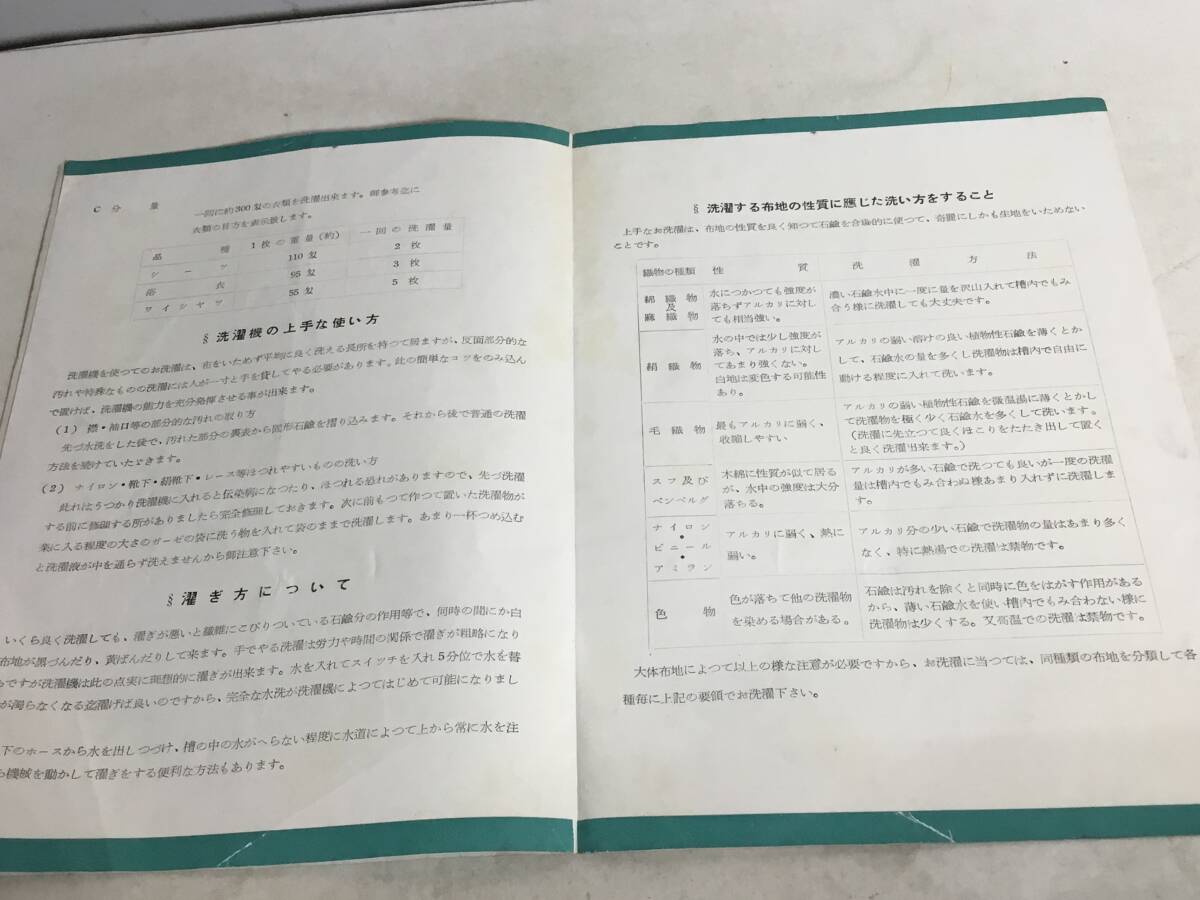 C 分量
一回に約300匁の衣類を洗濯出来ます。御参考迄に
衣類の目方を表示致します。
品種 1枚の重量(約) 一回の洗濯量
シーツ 110匁 2枚
浴衣 95匁 3枚
ワイシャツ 55匁 5枚
§ 洗濯機の上手な使い方
洗濯機を使つてのお洗濯は、布をいためず平均に良く洗える長所を持つて居ますが、反面部分的な
汚れや特殊なものの洗濯には人が一寸と手を貸してやる必要があります。此の簡単なコツをのみ込ん
で置けば、洗濯機の能力を充分発揮させる事が出来ます。
(1) 襟・袖口等の部分的な汚れの取り方
先づ水洗をした後で、汚れた部分の裏表から固形石鹸を摺り込みます。それから後で普通の洗濯
方法を続けていただきます。
(2) ナイロン・靴下・絹靴下・レース等ほつれやすいものの洗い方
此れはうつかり洗濯機に入れると伝染病になつたり、ほつれる恐れがありますので、先づ洗濯
する前に修理する所がありましたら完全修理しておきます。次に前もつて作つて置いた洗濯物が
楽に入る程度の大さのガーゼの袋に洗う物を入れて袋のままで洗濯します。あまり一杯つめ込む
と洗濯液が中を通らず洗えませんから御注意下さい。
§ 濯ぎ方について
いくら良く洗濯しても、濯ぎが悪いと繊維にこびりついている石鹸分の作用等で、何時の間にか白
布地が黒づんだり、黄ばんだりして来ます。手でやる洗濯は労力や時間の関係で濯ぎが粗略になり
ですが洗濯機は此の点実に理想的に濯ぎが出来ます。水を入れてスイッチを入れ5分位で水を替
が濁らなくなる迄濯げば良いのですから、完全な水洗が洗濯機によつてはじめて可能になりまし
下のホースから水を出しつづけ、槽の中の水がへらない程度に水道によつて上から常に水を注
機械を動かして濯ぎをする便利な方法もあります。
§ 洗濯する布地の性質に應じた洗い方をすること
上手なお洗濯は、布地の性質を良く知つて石鹸を合理的に使つて、奇麗にしかも生地をいためない
ことです。
織物の種類 性質 洗濯方法
綿織物
及
麻織物
水につかつても強度が
落ちずアルカリに対し
ても相当強い。
濃い石鹸水中に一度に量を沢山入れて槽内でもみ
合う様に洗濯しても大丈夫です。
絹織物
水の中では少し強度が
落ち、アルカリに対し
てあまり強くない。
白地は変色する可能性
あり。
アルカリの弱い溶けの良い植物性石鹸を薄くとか
して、石鹸水の量を多くし洗濯物は槽内で自由に
動ける程度に入れて洗います。
毛織物
最もアルカリに弱く、
収縮しやすい
アルカリの弱い植物性石鹸を微温湯に薄くとかし
て洗濯物を極く少く石鹸水を多くして洗います。
(洗濯に先立つて良くほこりをたたき出して置く
と良く洗濯出来ます。)
スフ及び
ベンベルグ
木綿に性質が似て居る
が、水中の強度は大分
落ちる。
アルカリが多い石鹸で洗つても良いが一度の洗濯
量は槽内でもみ合わぬ様あまり入れずに洗濯しま
す。
ナイロン
・
ビニール
・
アミラン
アルカリに弱く、熱に
弱い。
アルカリ分の少い石鹸で洗濯物の量はあまり多く
なく、特に熱湯での洗濯は禁物です。
色物
色が落ちて他の洗濯物
を染める場合がある。
石鹸は汚れを除くと同時に色をはがす作用がある
から、薄い石鹸水を使い槽内でもみ合わない様に
洗濯物は少くする。又高温での洗濯は禁物です。
大体布地によつて以上の様な注意が必要ですから、お洗濯に当つては、同種類の布地を分類して各
種毎に上記の要領でお洗濯下さい。